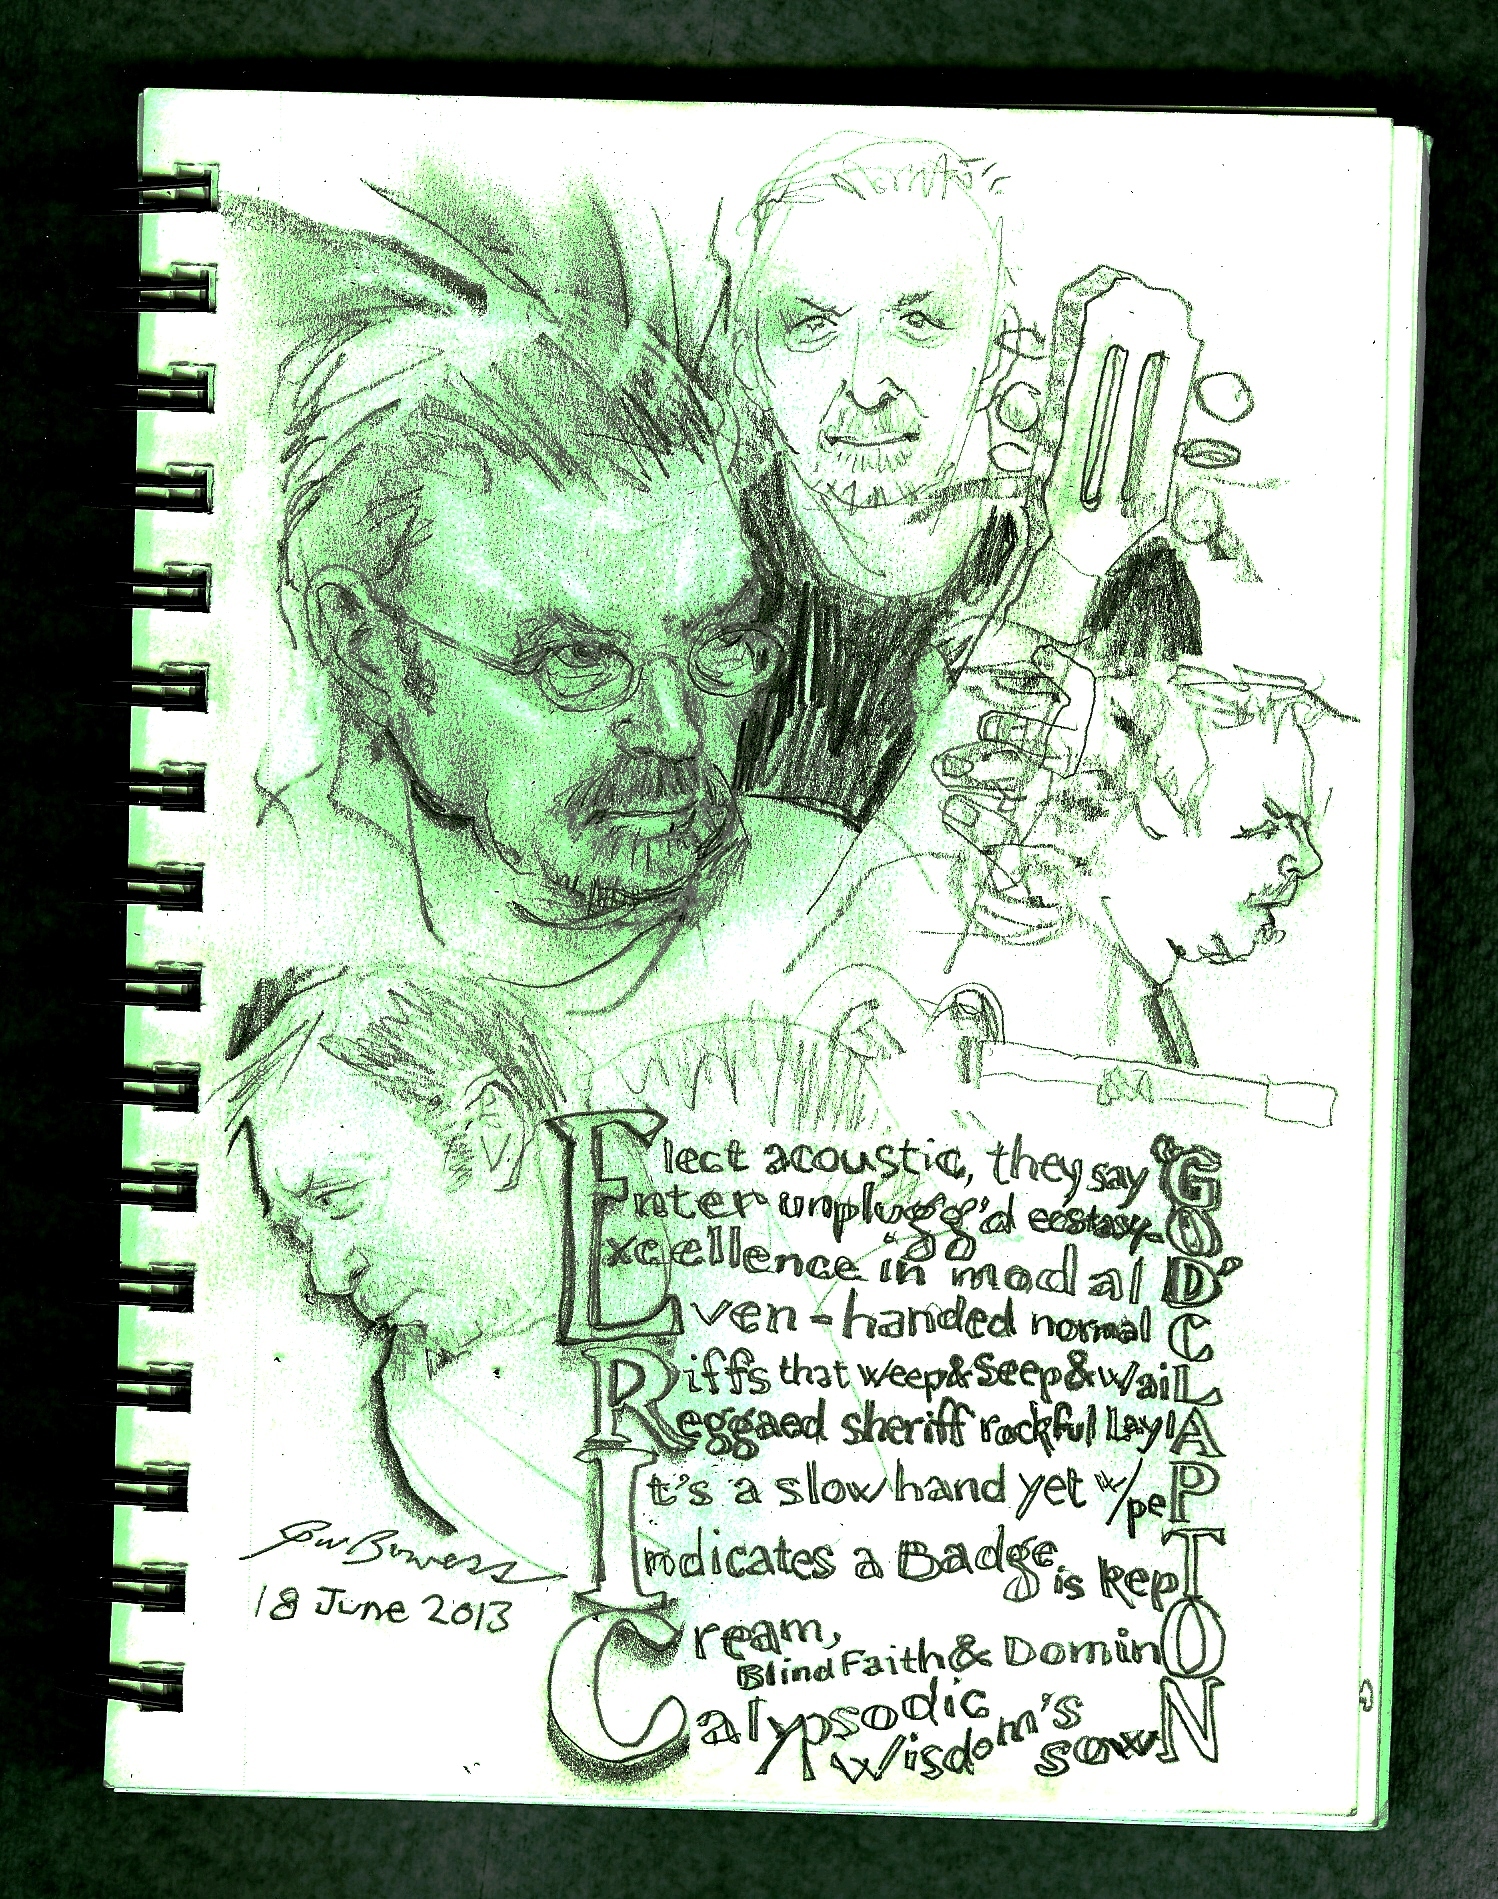 Elect acoustic, they say "G
Enter unplugg'd ecstasy-O
Excellence in modal D"
Even-handed normal C
Riffs that weep&Seep&WaiL
Reggaed sheriff rockful LaylA
It's a slowhand yet w/peP
Indicates a Badge is kepT
Cream,
Blind Faith & DominO
Calypsodic
Wisdom's sowN
18 June 2013